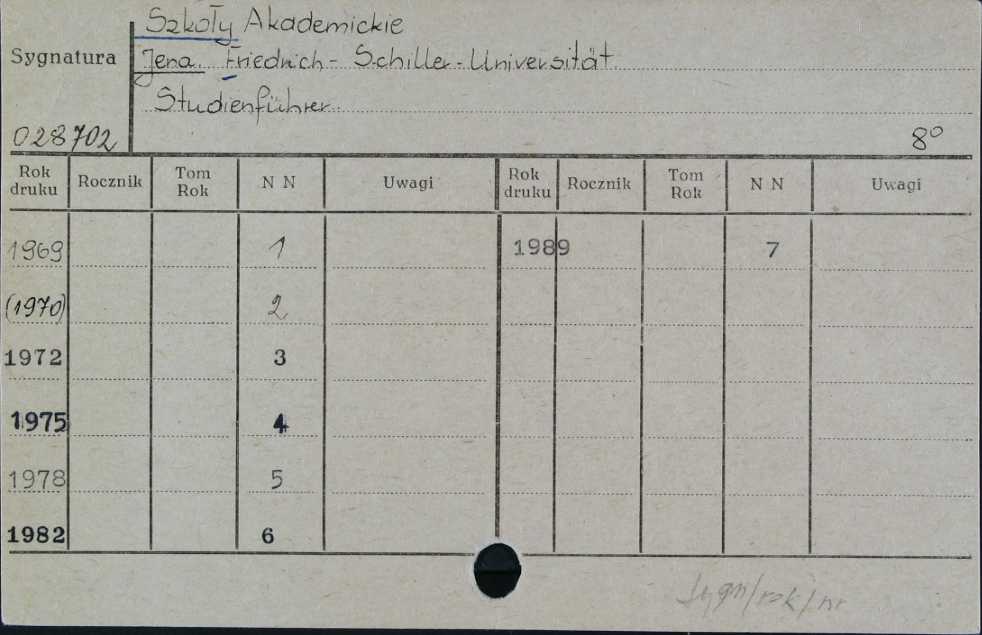 Szkoły Akademickie
Sygnatura
Jena. Friedrich-Schiller-Universität.
Studienführer.
028702
8°
Rok druku Rocznik Tom Rok N N Uwagi Rok druku Rocznik Tom Rok N N Uwagi
1969 1 1989 7
(1970) 2
1972 3
1975 4
1978 5
1982 6
sygn/rok/nr